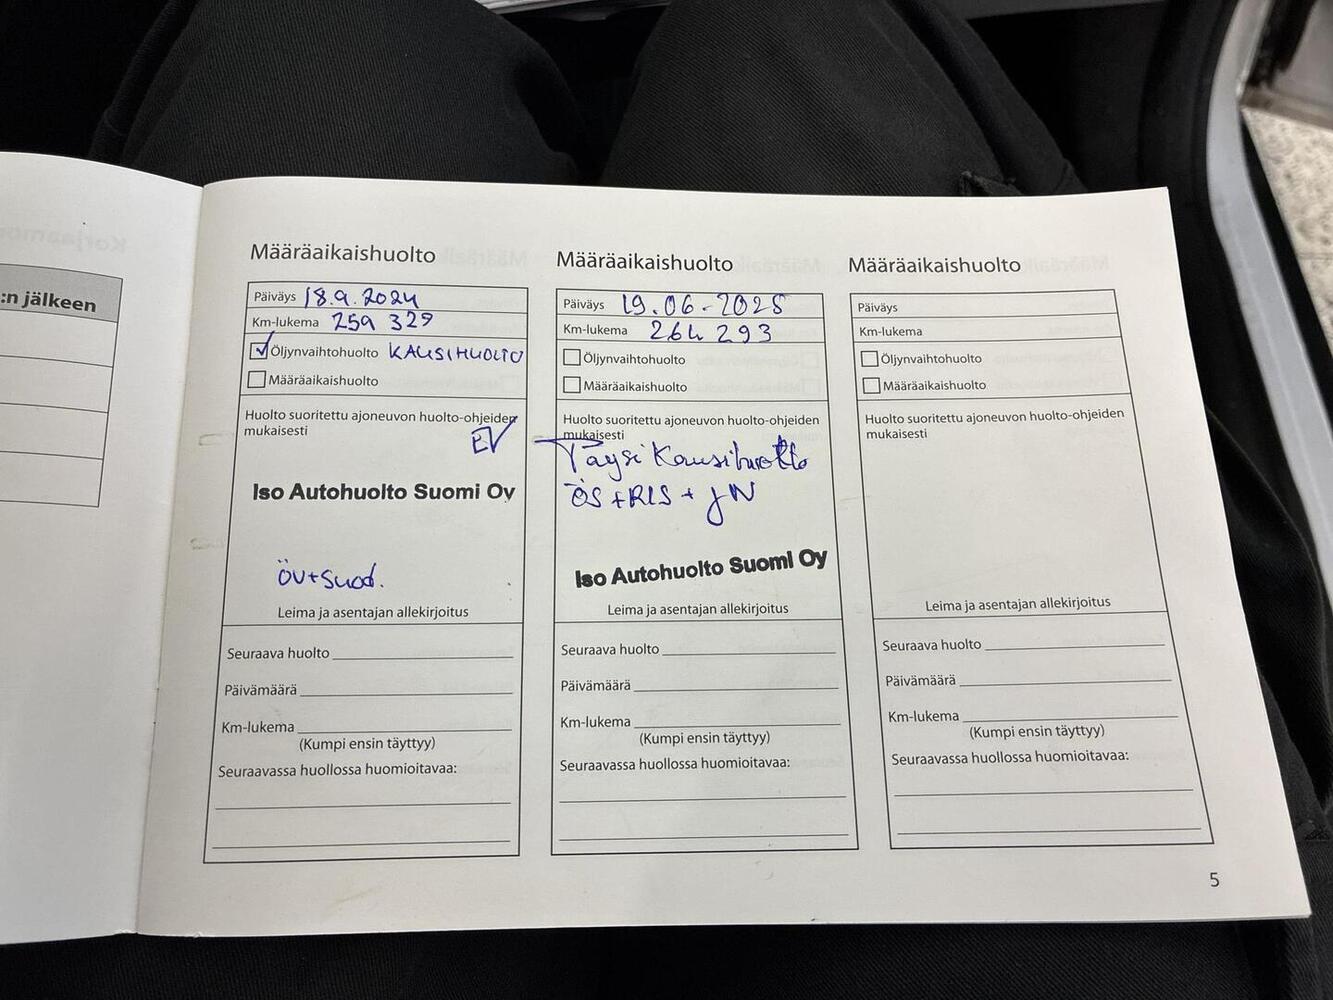 :n jälkeen
Määräaikaishuolto
Päiväys 18.9.2024
Km-lukema 259 329
Öljynvaihtohuolto KAUSIHUOLTO
Määräaikaishuolto
Huolto suoritettu ajoneuvon huolto-ohjeiden
mukaisesti
Iso Autohuolto Suomi Oy
ÖV+Suod.
Leima ja asentajan allekirjoitus
Seuraava huolto
Päivämäärä
Km-lukema
(Kumpi ensin täyttyy)
Seuraavassa huollossa huomioitavaa:
Määräaikaishuolto
Päiväys 19.06-2025
Km-lukema 264 293
Öljynvaihtohuolto
Määräaikaishuolto
Huolto suoritettu ajoneuvon huolto-ohjeiden
mukaisesti
Täysi Kausihuolto
ÖS+RIS+JN
Iso Autohuolto Suomi Oy
Leima ja asentajan allekirjoitus
Seuraava huolto
Päivämäärä
Km-lukema
(Kumpi ensin täyttyy)
Seuraavassa huollossa huomioitavaa:
Määräaikaishuolto
Päiväys
Km-lukema
Öljynvaihtohuolto
Määräaikaishuolto
Huolto suoritettu ajoneuvon huolto-ohjeiden
mukaisesti
Leima ja asentajan allekirjoitus
Seuraava huolto
Päivämäärä
Km-lukema
(Kumpi ensin täyttyy)
Seuraavassa huollossa huomioitavaa:
5